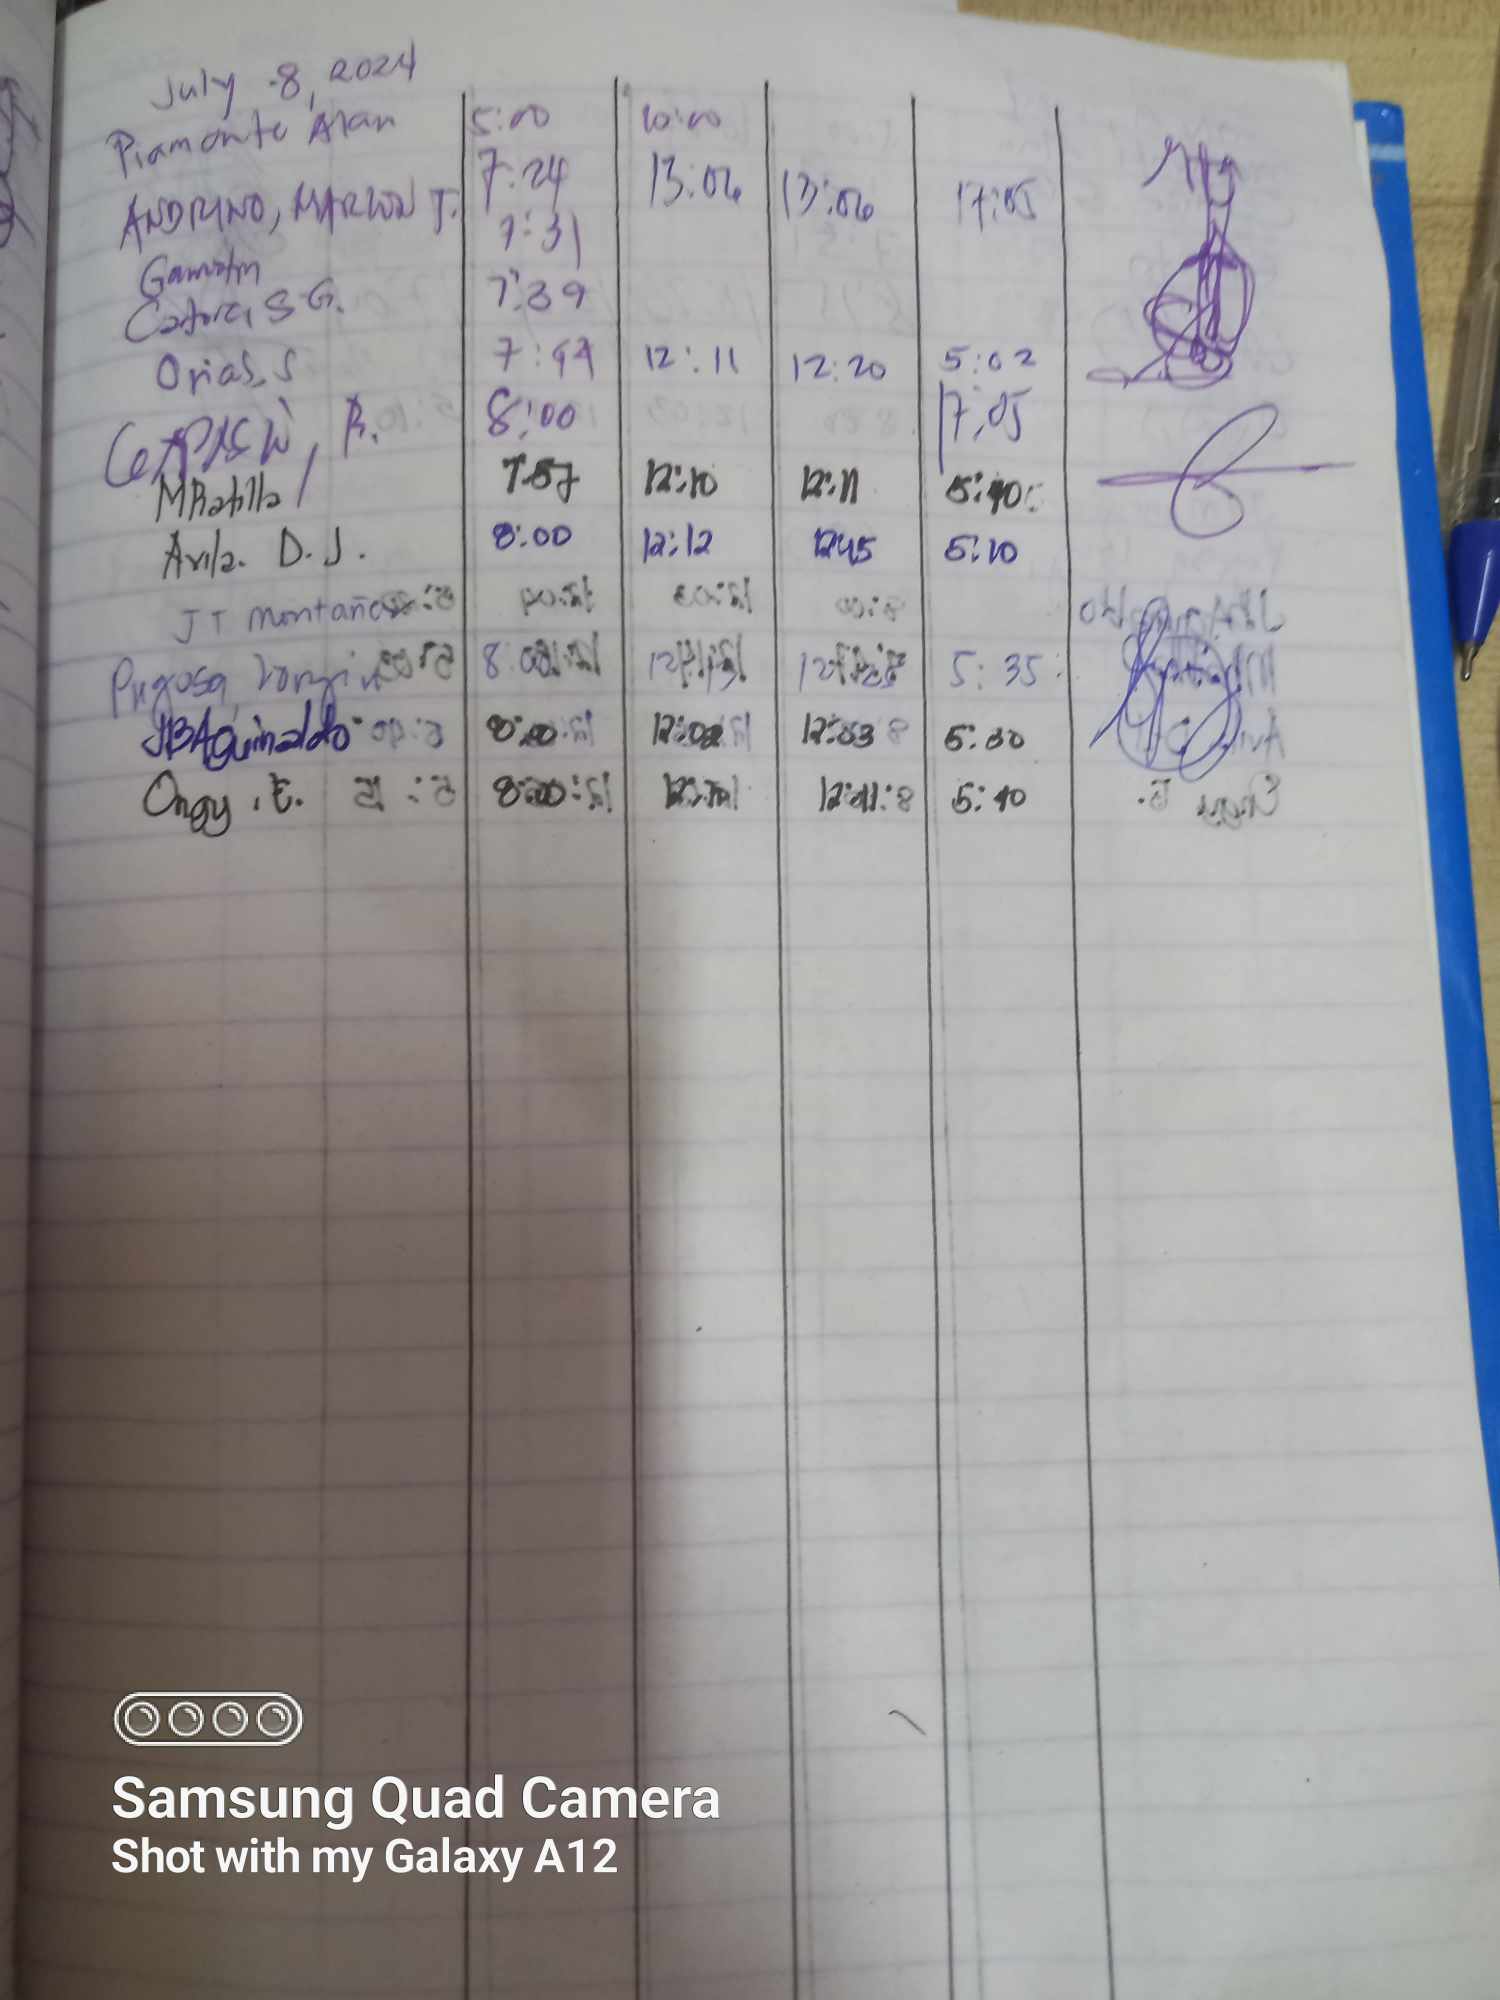 July 8, 2024
Piamonte Alan 5:00 10:00
ANDRINO, MARLON J. 7:24 13:06 13:06 17:05
7:31
S G. 7:39
Orias, S 7:44 12:11 12:20 5:02
R. 8:00 17:05
MRatilla 7:57 12:10 12:11 5:40
Avila. D.J. 8:00 12:12 1245 5:10
JT Montaña
Pugosa, 8: 12: 12: 5:35
JBAguinaldo 8:00 12:02 12:03 5:30
Ongy . E. 8:00 5:40
Samsung Quad Camera
Shot with my Galaxy A12